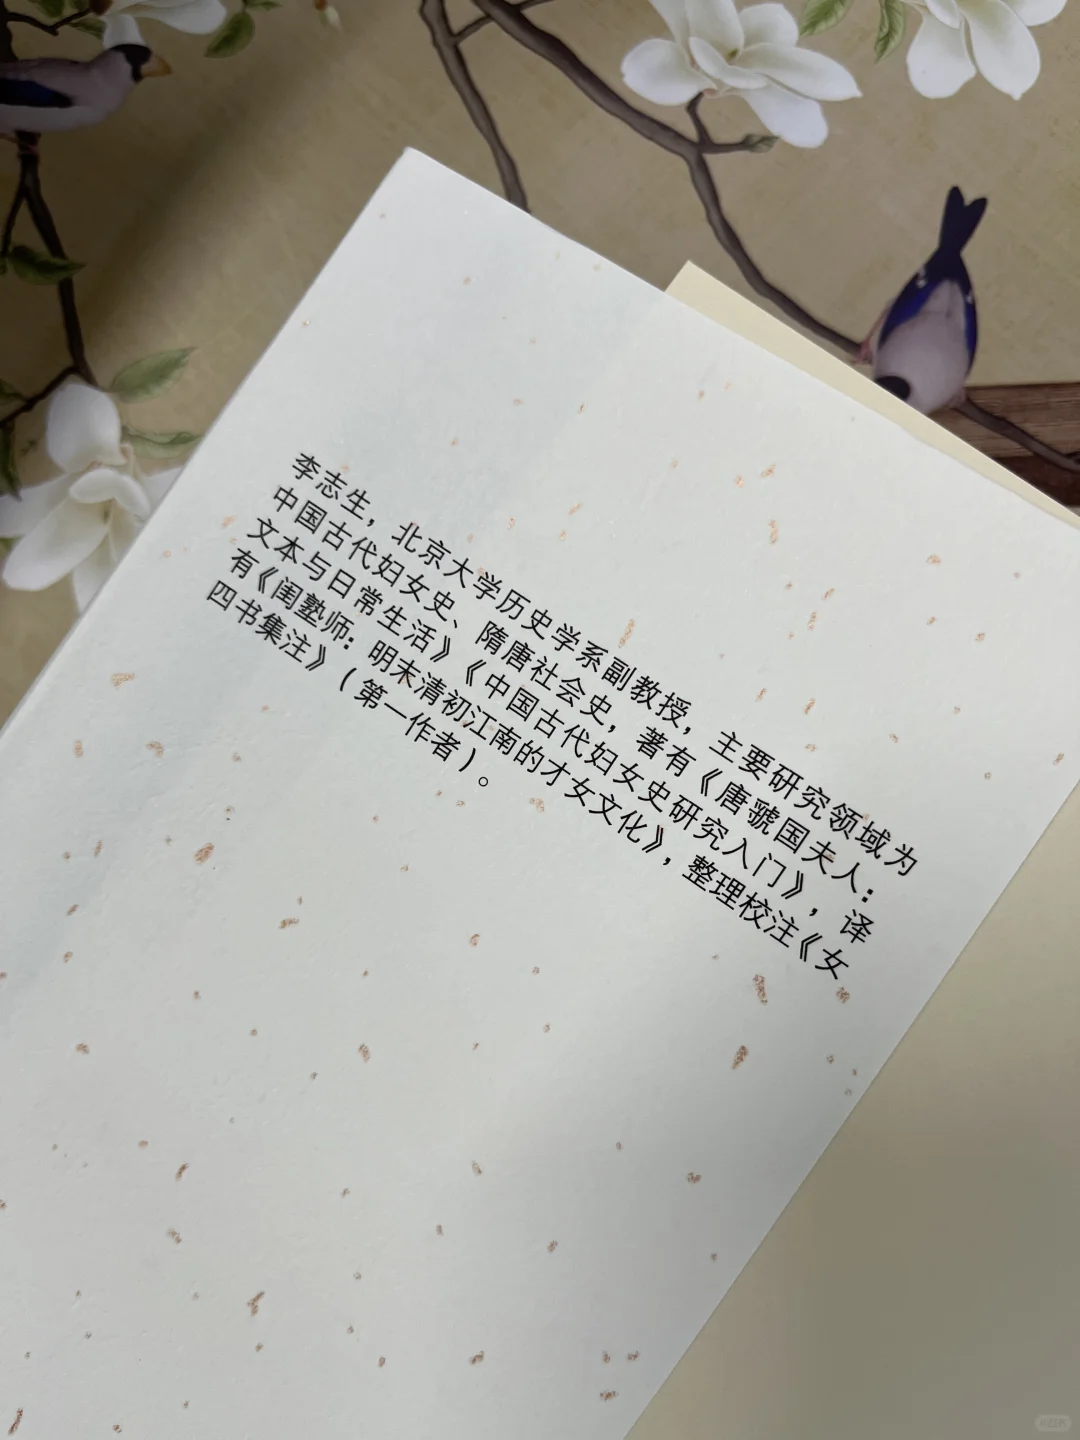 李志生，北京大学历史学系副教授，主要研究领域为
中国古代妇女史、隋唐社会史，著有《唐虢国夫人：
文本与日常生活》《中国古代妇女史研究入门》，译
有《闺塾师：明末清初江南的才女文化》，整理校注《女
四书集注》（第一作者）。